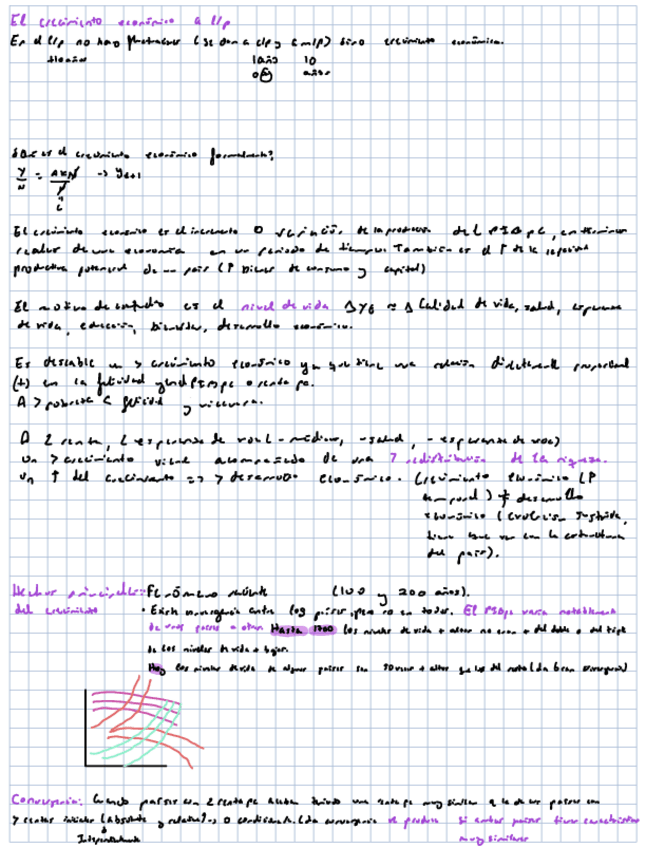 El crecimiento económico a l/p
En el l/p no hay fluctuaciones (se dan a c/p y a m/p) sino crecimiento económico.
+10 años 1 año 10
años
¿Qué es el crecimiento económico formalmente?
Y/N =
El crecimiento económico es el incremento o variación de la producción del PIBpc, en términos
reales de una economía en un periodo de tiempo. También es el ↑ de la capacidad
productiva potencial de un país (↑ bienes de consumo y capital)
El motivo de estudio es el nivel de vida Calidad de vida, salud, esperanza
de vida, educación, bienestar, desarrollo económico.
Es deseable un > crecimiento económico ya que tiene una relación directamente proporcional
(+) en la felicidad y en el PIBpc o renta pc.
A > pobreza < felicidad y
A < renta, < esperanza de vida (- médicos, - salud, - esperanza de vida)
Un > crecimiento viene acompañado de una > redistribución de la riqueza.
Un ↑ del crecimiento => > desarrollo económico. Crecimiento económico (↑
temporal) ≠ desarrollo
económico
tiene que ver con la estructura
del país).
Hechos principales: Fenómeno reciente (100 y 200 años).
del crecimiento • Existe convergencia entre los países, pero no en todos. El PIBpc varía notablemente
de unos países a otros. Hasta 1700 los niveles de vida + altos no eran + del doble o del triple
de los niveles de vida + bajos.
Hoy los niveles de vida de algunos países son veces + altos que los del resto
Convergencia: Cuando países con < renta pc acaban teniendo una renta pc muy similar a la de los países con
> rentas iniciales (absoluta y relativa) o condicional. (La convergencia se produce si ambos países tienen características
muy similares